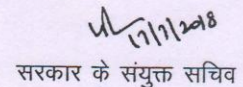 17/7/2018
सरकार के संयुक्त सचिव